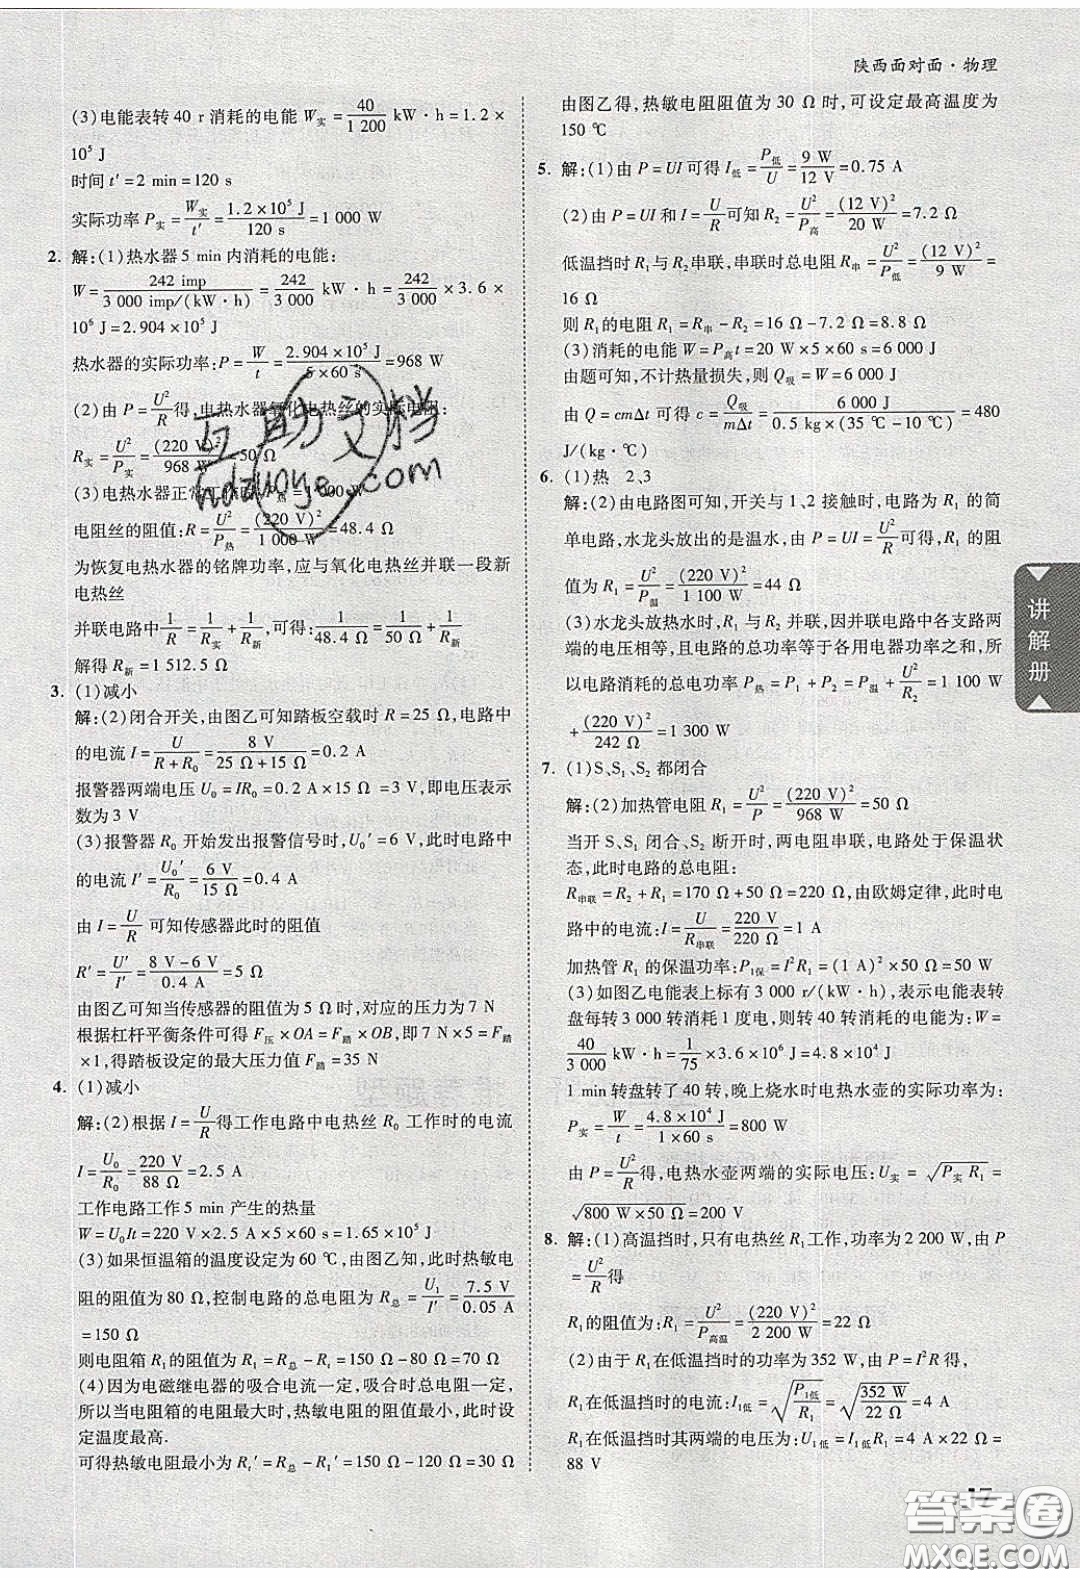 陕西面对面·物理
(3)电能表转 40 r 消耗的电能 W实 = 40/1 200 kW·h = 1.2×
10⁵ J
时间 t′=2 min=120 s
实际功率 P实 = W实/t′ = 1.2×10⁵ J/120 s = 1 000 W
2. 解:(1)热水器 5 min 内消耗的电能:
W = 242 imp/3 000 imp/(kW·h) = 242/3 000 kW·h = 242/3 000 ×3.6×
10⁶ J=2.904×10⁵ J
热水器的实际功率:P = W/t = 2.904×10⁵ J/5×60 s = 968 W
(2)由 P = U²/R 得,电热水器氧化电热丝的实际电阻:
R实 = U²/P实 = (220 V)²/968 W = 50 Ω
(3)电热水器正常工作时,P热=1 000 W
电阻丝的阻值:R = U²/P热 = (220 V)²/1 000 W = 48.4 Ω
为恢复电热水器的铭牌功率,应与氧化电热丝并联一段新
电热丝
并联电路中 1/R = 1/R实 + 1/R新,可得: 1/48.4 Ω = 1/50 Ω + 1/R新
解得 R新=1 512.5 Ω
3. (1)减小
解:(2)闭合开关,由图乙可知踏板空载时 R=25 Ω,电路中
的电流 I = U/R+R₀ = 8 V/25 Ω+15 Ω = 0.2 A
报警器两端电压 U₀=IR₀=0.2 A×15 Ω=3 V,即电压表示
数为 3 V
(3)报警器 R₀ 开始发出报警信号时,U₀′=6 V,此时电路中
的电流 I′ = U₀′/R₀ = 6 V/15 Ω = 0.4 A
由 I = U/R 可知传感器此时的阻值
R′ = U′/I′ = 8 V-6 V/0.4 A = 5 Ω
由图乙可知当传感器的阻值为 5 Ω时,对应的压力为 7 N
根据杠杆平衡条件可得 F压×OA=F踏×OB,即 7 N×5=F踏
×1,得踏板设定的最大压力值 F踏=35 N
4. (1)减小
解:(2)根据 I = U/R 得工作电路中电热丝 R₀ 工作时的电流
I = U₀/R₀ = 220 V/88 Ω = 2.5 A
工作电路工作 5 min 产生的热量
W=U₀It=220 V×2.5 A×5×60 s=1.65×10⁵ J
(3)如果恒温箱的温度设定为 60 ℃,由图乙知,此时热敏电
阻的阻值为 80 Ω,控制电路的总电阻为 R总 = U₁/I′ = 7.5 V/0.05 A
=150 Ω
则电阻箱 R₁的阻值为 R₁=R总-Rt=150 Ω-80 Ω=70 Ω
(4)因为电磁继电器的吸合电流一定,吸合时总电阻一定,
所以当电阻箱的电阻最大时,热敏电阻的阻值最小,此时设
定温度最高.
可得热敏电阻最小为 Rt′=R总-R₁′=150 Ω-120 Ω=30 Ω
由图乙得,热敏电阻阻值为 30 Ω 时,可设定最高温度为
150 ℃
5. 解:(1)由 P=UI 可得 I低 = P低/U = 9 W/12 V = 0.75 A
(2)由 P=UI 和 I = U/R 可知 R₂ = U²/P高 = (12 V)²/20 W = 7.2 Ω
低温挡时 R₁与 R₂串联,串联时总电阻 R串 = U²/P低 = (12 V)²/9 W =
16 Ω
则 R₁的电阻 R₁=R串-R₂=16 Ω-7.2 Ω=8.8 Ω
(3)消耗的电能 W=P高t=20 W×5×60 s=6 000 J
由题可知,不计热量损失,则 Q吸=W=6 000 J
由 Q=cmΔt 可得 c = Q吸/mΔt = 6 000 J/0.5 kg×(35 ℃-10 ℃) = 480
J/(kg·℃)
6. (1)热 2、3
解:(2)由电路图可知,开关与 1、2 接触时,电路为 R₁ 的简
单电路,水龙头放出的是温水,由 P=UI = U²/R 可得,R₁ 的阻
值为 R₁ = U²/P温 = (220 V)²/1 100 W = 44 Ω
(3)水龙头放热水时,R₁与 R₂ 并联,因并联电路中各支路两
端的电压相等,且电路的总功率等于各用电器功率之和,所
以电路消耗的总电功率 P热=P₁+P₂=P温+ U²/R₂ = 1 100 W
+ (220 V)²/242 Ω = 1 300 W
7. (1)S、S₁、S₂ 都闭合
解:(2)加热管电阻 R₁ = U²/P = (220 V)²/968 W = 50 Ω
当开 S、S₁ 闭合、S₂ 断开时,两电阻串联,电路处于保温状
态,此时电路的总电阻:
R串联=R₂+R₁=170 Ω+50 Ω=220 Ω,由欧姆定律,此时电
路中的电流:I = U/R串联 = 220 V/220 Ω = 1 A
加热管 R₁ 的保温功率:P₁保=I²R₁=(1 A)²×50 Ω=50 W
(3)如图乙电能表上标有 3 000 r/(kW·h),表示电能表转
盘每转 3 000 转消耗 1 度电,则转 40 转消耗的电能为:W=
40/3 000 kW·h = 1/75 ×3.6×10⁶ J=4.8×10⁴ J
1 min 转盘转了 40 转,晚上烧水时电热水壶的实际功率为:
P实 = W/t = 4.8×10⁴ J/1×60 s = 800 W
由 P = U²/R 得,电热水壶两端的实际电压:U实 = √P实R₁ =
√800 W×50 Ω = 200 V
8. 解:(1)高温挡时,只有电热丝 R₁工作,功率为 2 200 W,由 P
= U²/R 得
R₁的阻值为:R₁ = U²/P高温 = (220 V)²/2 200 W = 22 Ω
(2)由于 R₁在低温挡时的功率为 352 W,由 P=I²R 得,
R₁在低温挡时的电流:I₁低 = √P₁低/R₁ = √352 W/22 Ω = 4 A
R₁在低温挡时其两端的电压为:U₁低=I₁低R₁=4 A×22 Ω=
88 V
讲解册
互助文档
hdzuoye.com
答案圈
MXQE.COM